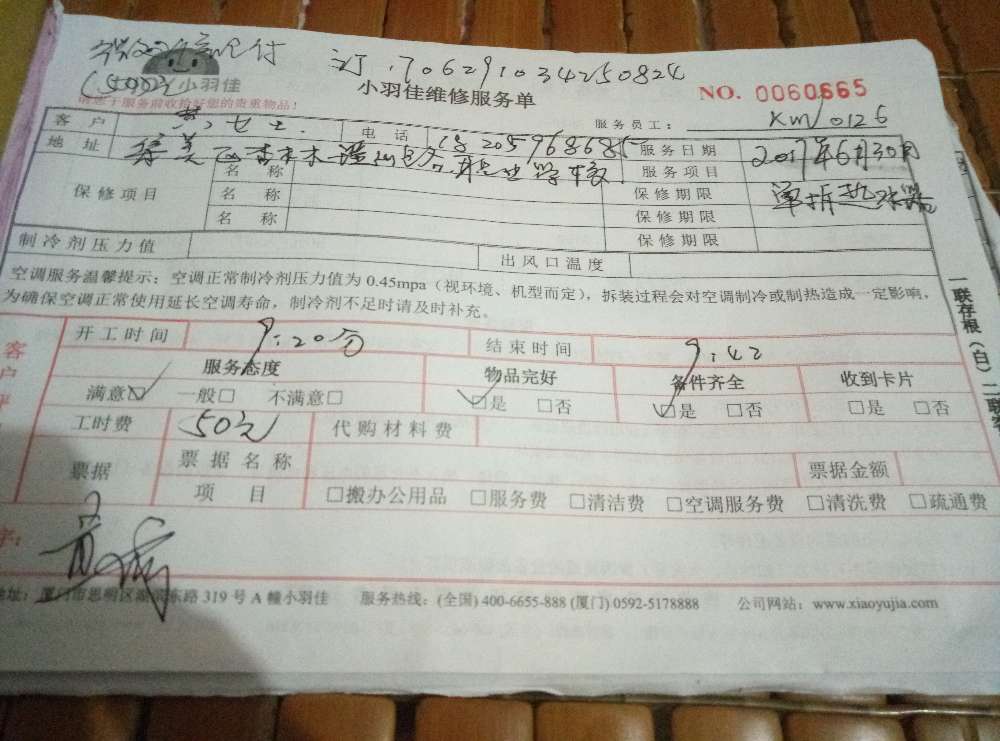 订.706291034250824
(50元) 小羽佳
小羽佳维修服务单
NO. 0060665
服务前收拾好您的贵重物品!
服务员工: KM/0126
客户 黄女士. 电话 服务日期 2017年6月30月
地址 服务项目 单拆热水器
保修项目 名称 保修期限
名称 保修期限
名称 保修期限
制冷剂压力值 出风口温度
空调服务温馨提示: 空调正常制冷剂压力值为 0.45mpa (视环境、机型而定), 拆装过程会对空调制冷或制热造成一定影响,
为确保空调正常使用延长空调寿命, 制冷剂不足时请及时补充。
开工时间 9:20分 结束时间 9:42
服务态度 物品完好 备件齐全 收到卡片
满意☑ 一般□ 不满意□ ☑是 □否 ☑是 □否 □是 □否
工时费 50元 代购材料费
票据 票据名称 票据金额
项目 □搬办公用品 □服务费 □清洁费 □空调服务费 □清洗费 □疏通费
地址: 厦门市思明区湖滨东路 319 号 A 幢小羽佳 服务热线: (全国) 400-6655-888 (厦门) 0592-5178888 公司网站: www.xiaoyujia.com
一联存根(白) 二联客
客户